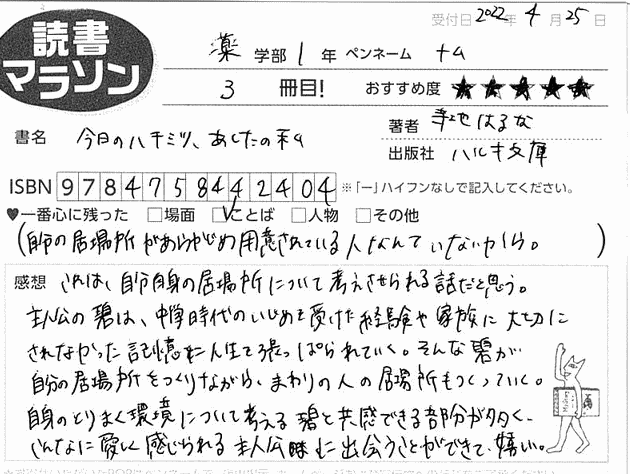 受付日 2022年 4月 25日
読書マラソン
薬 学部 1 年 ペンネーム ナム
3 冊目! おすすめ度 ★★★★★
書名 今日のハチミツ、あしたの私
著者 寺地はるな
出版社 ハルキ文庫
ISBN 9784758442404 ※「ー」ハイフンなしで記入してください。
♥一番心に残った □場面 ☑ことば □人物 □その他
(自分の居場所があらかじめ用意されている人なんていないから。)
感想 これは、自分自身の居場所について考えさせられる話だと思う。
主人公の碧は、中学時代のいじめを受けた経験や家族に大切に
されなかった記憶に人生で引っぱられていく。そんな碧が
自分の居場所をつくりながら、まわりの人の居場所もつくっていく。
自身のとりまく環境について考える碧と共感できる部分が多く、
こんなに愛しく感じられる主人公に出会うことができて、嬉しい。